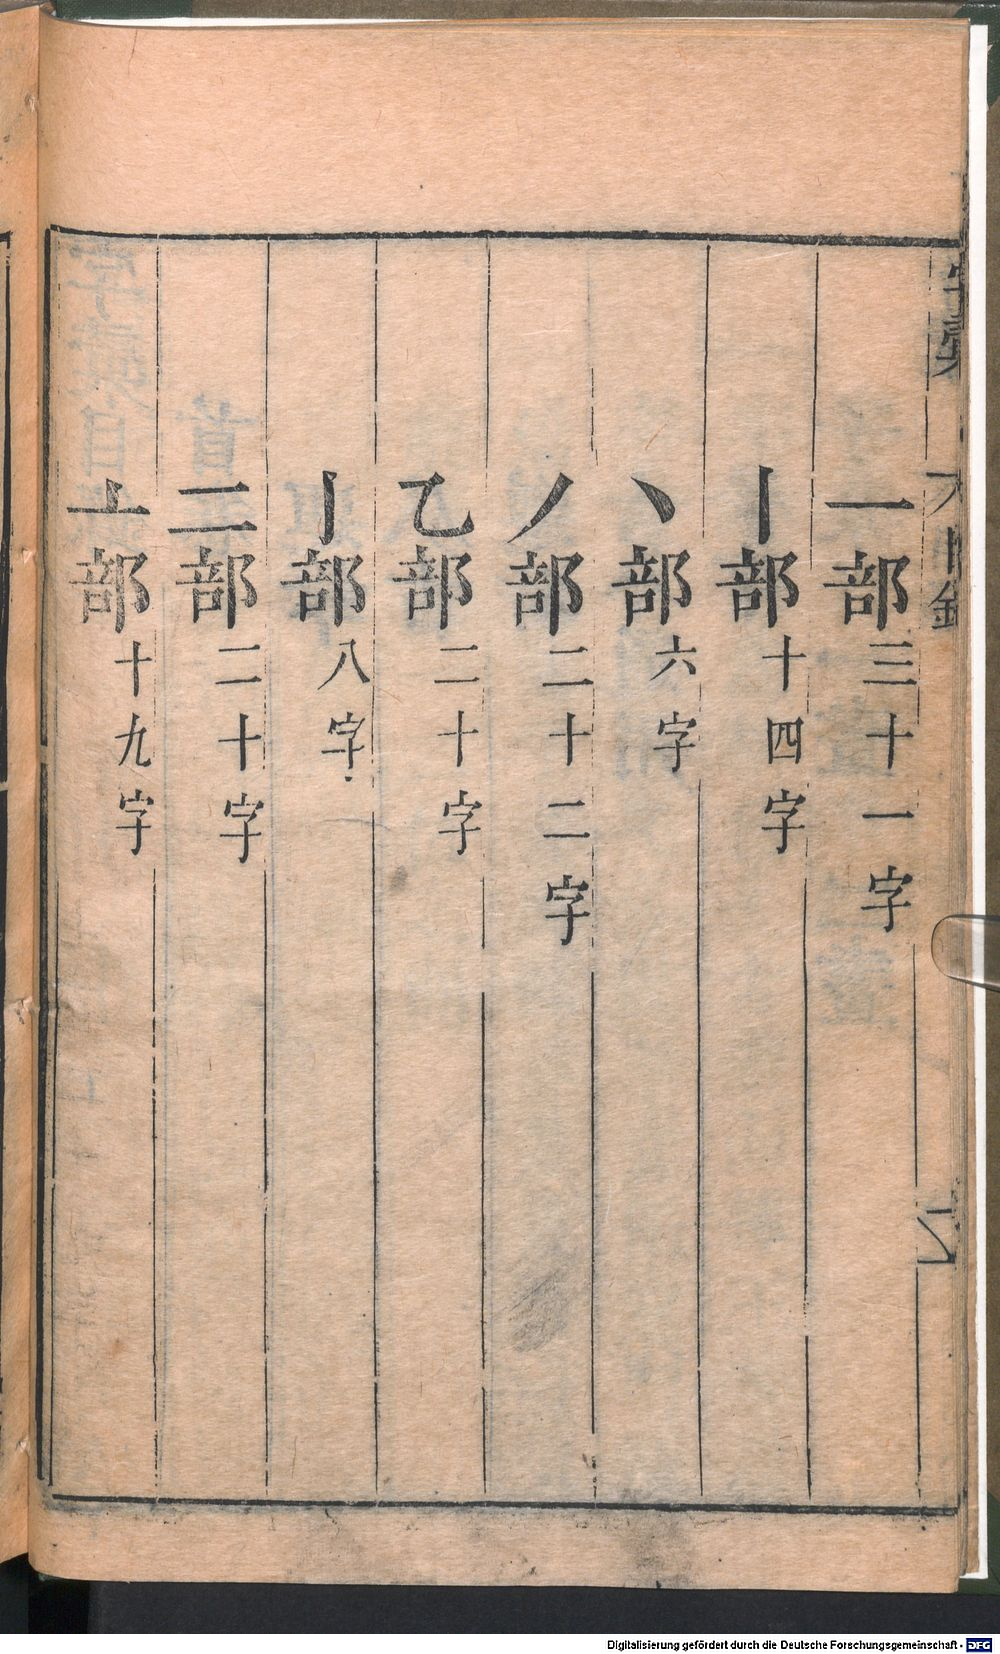 一部三十一字
丨部十四字
丶部六字
丿部二十二字
乙部二十字
亅部八字
二部二十字
亠部十九字
Digitalisierung gefördert durch die Deutsche Forschungsgemeinschaft - DFG